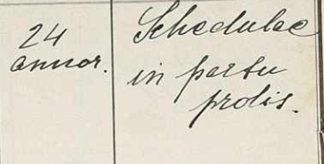 24
annor.
Schedulae
in partu
prolis.